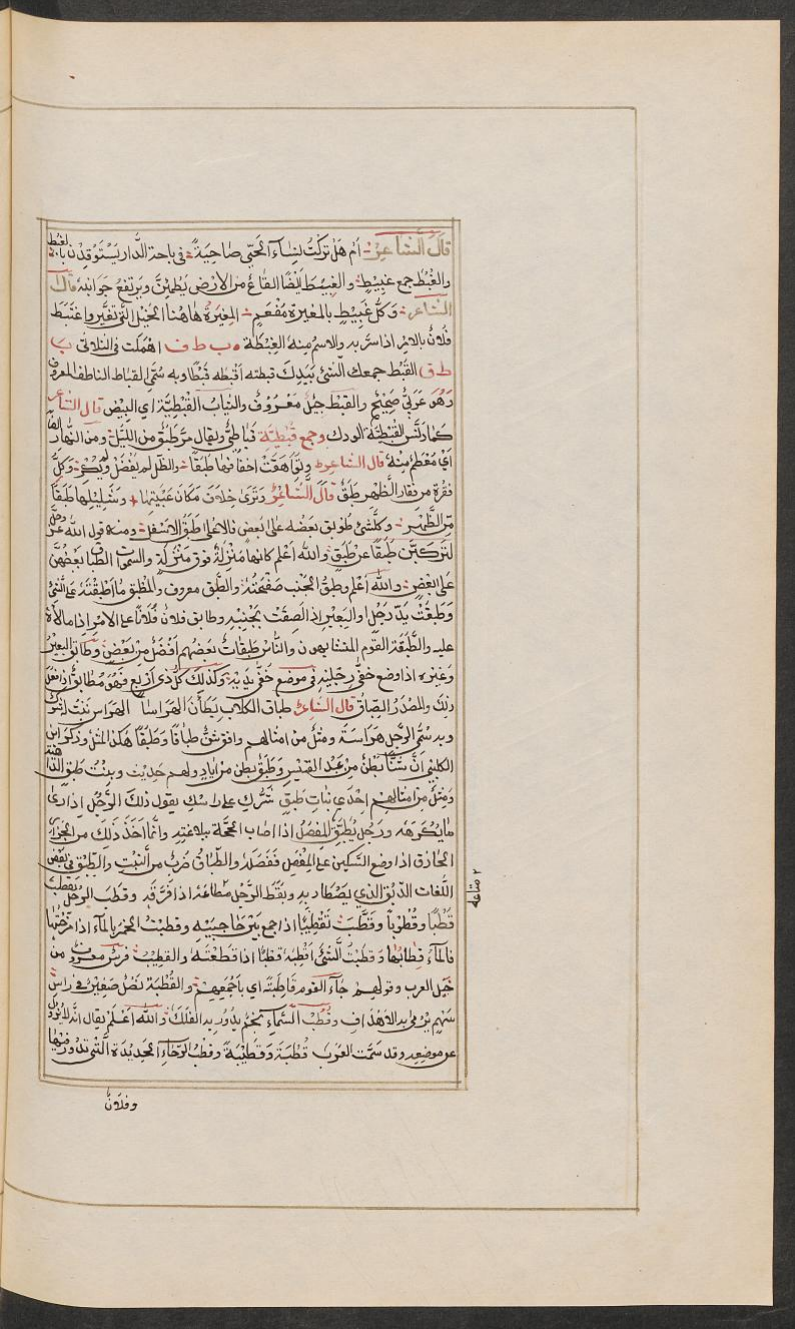 قال الشاعر أم هل تركت نساء الحي ضاحية في باحة الدار يستوقدن بالغبط
والغبط جمع غبيط والغبيط أيضا القاع من الارض يطمئن ويرتفع جوانبه قال
الشاعر وكل غبيط بالمغيرة مفعم المغيرة هاهنا الخيل التي تغير واغتبط
فلان بالامر اذا سر به والاسم منه الغبطة ب ط ف اهملت في الثلاثي ب
ط ق القبط جمعك الشئ بيدك قبطته أقبطه قبطا وبه سمي القباط الناطف المعروف
وهو عربي صحيح والقبط جيل معروف والثياب القبطية اي البيض قال الشاعر
كما دنس القبطية الودك وجمع قبطية قباطي ويقال مر طبق من الليل ومن النهار
أي معظم منه قال الشاعر وتواهقت اخفافها طبقا والظل لم يفضل ولم يكر وكل
فقرة من فقار الظهر طبق قال الشاعر وترى خلاق مكان عيبتها وشليلها طبقا
من الظهر وكل شئ طوبق بعضه على بعض فالاعلى طبق الاسفل ومنه قول الله عز وجل
لتركبن طبقا عن طبق والله أعلم كانها منزلة فوق منزلة والسموات الطباق بعضهن
على بعض والله أعلم وطبق الجنب صفحته والطبق معروف والمطبق ما أطبقته على الشئ
وطبقت يد رجل او البعير اذا لصقت بجنبيه وطابق فلان فلانا على الامر اذا مالأه
عليه والطبقة القوم المتشابهون والناس طبقات بعضهم أفضل من بعض وطابق البعير
وغيره اذا وضع خفي رجليه في موضع خفي يديه وكذلك كل ذي أربع فهو مطابق اذا فعل
ذلك والمصدر الطباق قال الشاعر طباق الكلاب يطأن الهراسا الهراس نبت له شوك
وبه سمي الرجل هراسة ومثل من امثالهم وافق شن طباقا وطبقا هكذا المثل وذكر ابن
الكلبي أن شنا بطن من عبد القيس وطبق بطن من اياد ولهم حديث وبنت طبق الداهية
ومثل من امثالهم احدى بنات طبق شرك على راسك يقول ذلك الرجل اذا رأى
ما يكرهه ورجل يطبق المفصل اذا اصاب الحجة ببلاغته وانما أخذ ذلك من الجزار
الحاذق اذا وضع السكين على المفصل ففصله والطباق ضرب من النبت والطبق في بعض
اللغات الدبق الذي يصطاد به وبقط الرجل متاعه اذا فرقه وقطب الرجل يقطب
قطبا وقطوبا وقطب تقطيبا اذا جمع بين حاجبيه وقطبت الخمر بالماء اذا مزجتها
فالماء قطابها وقطبت الشئ أقطبه قطبا اذا قطعته والقطيب فرس معروف من
خيل العرب وقولهم جاء القوم قاطبة اي باجمعهم والقطبة نصل صغير في راس
سهم يرمى به الاهداف وقطب السماء نجم يدور به الفلك والله أعلم يقال انه لا يزول
عن موضعه وقد سمت العرب قطبة وقطيبة وقطب الرحاء الحديدة التي تدور فيها
٢ متاعه
وفلان